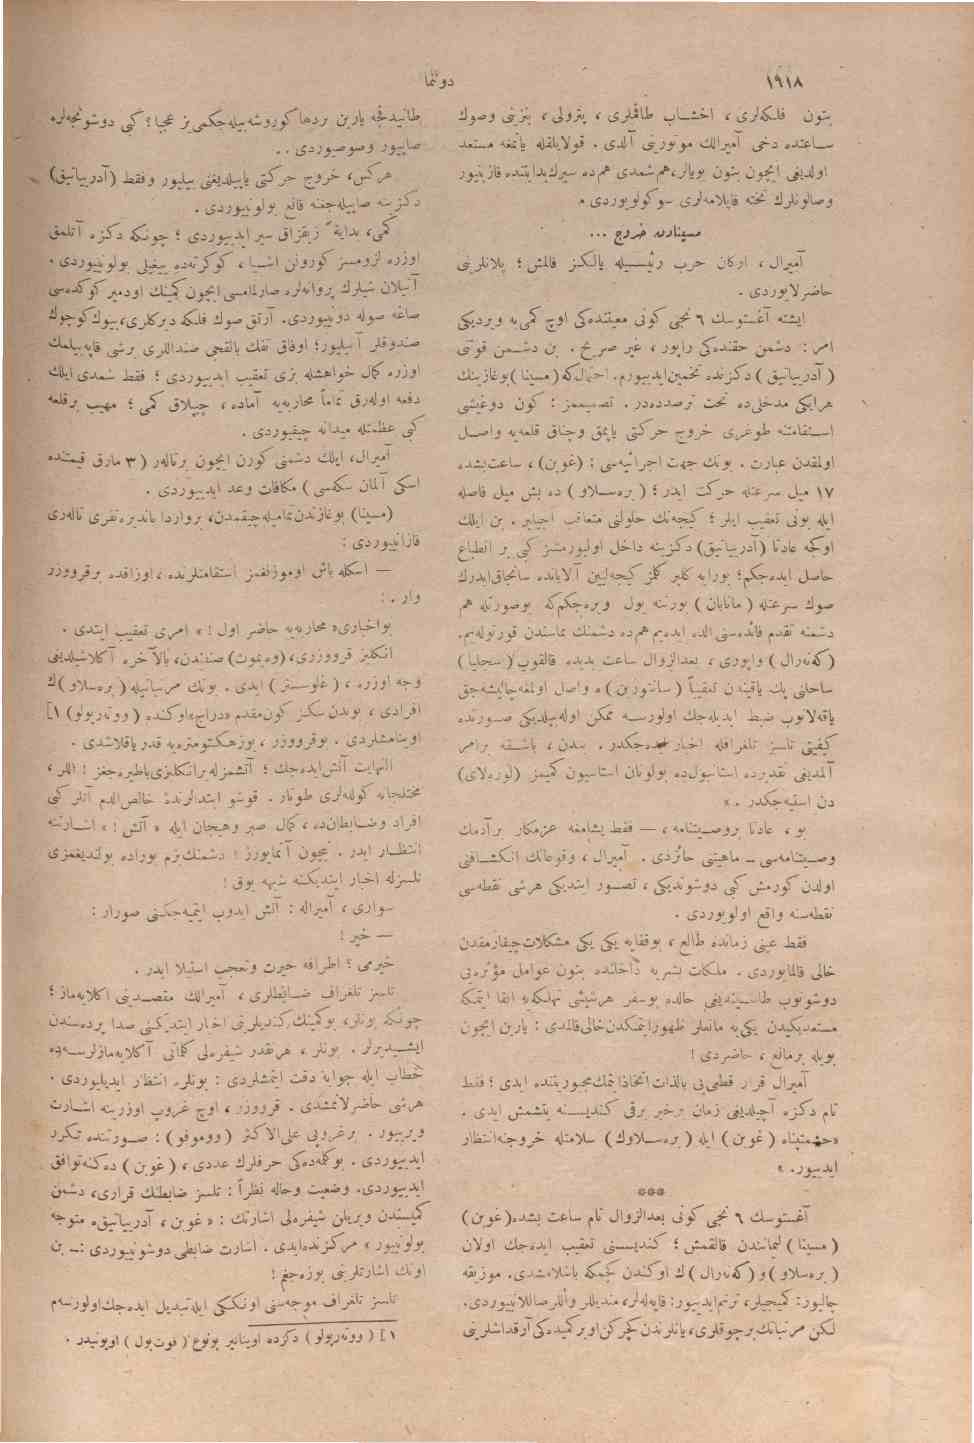 ١٩١٨
دوننما
بتون فلكه‌لری ، اخشاب طاقملری ، پترولی ، بنزینی وصوك
ساعتده دخی آمیرالك موتورینی آلدی . قولایلقله یانمغه مستعد
اولدیغی ایچون بتون بویالر، هم شمدی هم‌ده سیرك بدایتنده قازینیور
وصالونلرك تخته قاپلامه‌لری سوكولویوردی .
مسینادن خروج ...
آمیرال ، اركان حرب رئیسیله یالكز قالمش ؛ پلانلرینی
حاضرلایوردی .
ایشته آغستوسك ٦ نجی كونی معیتنده‌كی اوچ كمی‌یه ویردیكی
امر : دشمن حقنده‌كی راپور ، غیر صریح . بن دشمن قوتنی
( آدریاتیق ) دكزنده تخمین ایدیورم. احتمال كه ( مسینا ) بوغازینك
هرایكی مدخلی‌ده تحت ترصدده‌در . تصمیممز : كون دوغیشی
استقامتنه طوغری خروج حركتی یاپمق وچناق قلعه‌یه واصل
اولمقدن عبارت . بونك جهت اجرائیه‌سی : (غوبن) ، ساعت بشده
١٧ میل سرعتله حركت ایدر ؛ ( بره‌سلاو ) ده بش میل فاصله
ایله بونی تعقیب ایلر ؛ كیجه‌نك حلولنی متعاقب اجیلیر . بن ایلك
اوكجه عادتا (آدریاتیق) دكزینه داخل اولیورمشز كبی بر انطباع
حاصل ایده‌جكم؛ بورایه كلیر كلمز كیجه‌لیین آلایانده سانجاق ایدرك
صوك سرعتله ( ماتاپان ) بورننه یول ویره‌جكم كه بوصورتله هم
دشمنه تقدم فائده‌سنی الده ایدەیم هم‌ده دشمنك تماسندن قورتولەیم.
(كه‌نه‌رال ) واپوری ، بعدالزوال ساعت یدیده قالقوب ( سجلیا )
ساحلنی پك یاقیندن تعقیباً ( سانتورین )ه واصل اولمغه چالیشه‌جق
یاقه‌لانوب ضبط ایدیله‌جك اولورسه ممكن اوله‌بیلدیكی صورتده
كیفیتی تلسز تلغرافله اخبار ایده‌جكدر . بندن ، باشقه برامر
آلمدیغی تقدیرده استانبولده بولونان استاسیون كمیمز (لورەلای)
دن استیه‌جكدر . »
بو ، عادتا بروصیتنامه ، — فقط یشامغه عزمكار برآدمك
وصیتنامه‌سی — ماهیتنی حائزدی . آمیرال ، وقوعاتك انكشافنی
اولدن كورمش كبی دوشوندیكی ، تصور ایتدیكی هرشی نقطه‌سی
نقطه‌سنه واقع اولویوردی .
فقط عینی زمانده طالع ، بوقفایه یكی یكی مشكلات چیقارمقدن
خالی قالمایوردی . ملكات بشریه داخلنده بتون عوامل مؤثره‌یی
دوشونوب طاسیندیغی حالده بوسفر هرشیئی تهلكه‌یه القا ایتمكه
مستعد یكیدن یكی‌یه مانعلر ظهور ایتمكدن خالی قالمدی : یارین ایچون
بویله برمانع ، حاضردی !
آمیرال قرار قطعی‌یی بالذات اتخاذ ایتمك مجبوریتنده ایدی ؛ فقط
تام دكزه آچیلدیغی زمان برخبر برقی كندیسنه یتشمش ایدی .
« حشمتپناه ( غوبن ) ایله ( بره‌سلاو )ك سلامتله خروجنه انتظار
ایدیور. »
***
آغستوسك ٦ نجی كونی بعدالزوال تام ساعت بشده ( غوبن )
( مسینا ) لیمانندن قالقمش ؛ كندیسنی تعقیب ایده‌جك اولان
( بره‌سلاو ) و ( كه‌نه‌رال )ك اوكندن كچمكه باشلامشدی. موزیقه
چالیور: كمیجیلر، ترنم ایدییور: قاپه‌له‌لر، مندیللر والالر صاللانییوردی.
لكن مرتباتك برچوقلری، یانلرندن كچركن اوبر كمیده‌كی آرقداشلرینی
طانیدقچه یارین بردها كوروشه‌بیله‌جكمی‌یز عجبا ؟ كبی دوشونجه‌لره
صاپیور وصوصیوردی . .
هركس، خروج حركتی یاپیلدیغنی بیلیور وفقط (آدریاتیق)
دكزینه صاپیله‌جغنه قانع بولونیوردی .
كمی، بدایةً زیقزاق سیر ایدییوردی ؛ چونكه دكزه آتلمق
اوزره لزومسز كورونن اشیا ، كوكرته‌ده ییغیلی بولونییوردی .
آتیلان شیلرك پروانه‌لره صارلمامسی ایچون كمینك اودمیر كوكده‌سی
صاغه صوله دونییوردی. آرتق صوك فلكه دیركلری، بیوك كوچوك
صندوقلر آتیلیور؛ اوفاق تفك بالقجی صنداللری برشی قاپه‌بیلمك
اوزره كمال خواهشله بزی تعقیب ایدییوردی ؛ فقط شمدی ایلك
دفعه اوله‌رق تماماً محاربه‌یه آماده ، چیپلاق كمی ؛ مهیب برقلعه
كبی عظمتله میدانه چیقیوردی .
آمیرال، ایلك دشمنی كورن ایچون برتاله‌ر ( ٣ مارق قیمتنده
اسكی آلمان سكه‌سی ) مكافات وعد ایدییوردی .
(مسینا) بوغازندن تمامیله چیقمدن، بروارداباندیره نفری تاله‌ری
قازانییوردی :
— اسكله باش اوموزلغمز استقامتلرنده ، اوزاقده برقرووزر
وار . :
بواخباری « محاربه‌یه حاضر اول ! » امری تعقیب ایتدی .
انكلیز قرووزری، (وه‌یموت) صنفندن، بالآخره آكلاشیلدیغی
وجه اوزره ، ( غلوسستر ) ایدی . بونك مرتباتیله ( بره‌سلاو )ك
افرادی ، بوندن سكز كون مقدم « دراج » اوكنده ( ووته‌رپولو ) [١
اوینامشلردی . بوقرووزر ، یوز هكتومتره‌یه قدر یاقلاشدی .
النهایت آتش ایده‌جك ؛ آتشمزله برانكلیزی باطیره‌جغز ! اللر ،
مختلجانه كولله‌لری طوتار . قوشو ابتدالرنده خالص الدم آتلر كبی
افراد وضابطان‌ده ، كمال صبر وهیجان ایله « آتش ! » اشارتنه
انتظار ایدر . نیچون آتمایورز ؛ دشمنك بزم بوراده بولندیغمزی
تلسزله اخبار ایتدیكنه شبهه یوق !
سواری ، آمیراله : آتش ایدوب ایتمیه‌جكنی صورار :
— خیر !
خیرمی ؟ اطرافه حیرت وتعجب استیلا ایدر .
تلسز تلغراف ضابطلری ، آمیرالك مقصدینی اكلایه‌ماز ؛
چونكه بونلر، بوكمینك كندیلرینی اخبار ایتدیكنی صدا پرده‌سندن
ایشیدیرلر . بونلر ، هرنقدر شیفره‌لی كلماتی آكلایه‌مازلرسه‌ده
خطاب ایله جوابه دقت ایتمشلردی : بونلره انتظار ایدیلیوردی .
هرشی حاضرلانمشدی . قرووزر ، اوچ غروپ اوزرینه اشارت
ویرییور . برغروپی علی الاكثر ( ووموفو ) : صورتنده تكرر
ایدییوردی . بوكله‌ده‌كی حرفلرك عددی ، (غوبن ) ده‌كنه توافق
ایدییوردی. وضعیت وحاله نظراً : تلسز ضابطنك قراری، دشمن
كمیسندن ویریلن شیفره‌لی اشارتك : « غوبن ، آدریاتیق » متوجه
بولونییور » مركزنده ایدی . اشارت ضابطی دوشونییوردی : — بن
اونك اشارتلرینی بوزه‌جغم !
تلسز تلغراف موجه‌سنی اونككی ایله تبدیل ایده‌جك اولورسه‌م
١] ( ووته‌رپولو ) دكزده اوینانیر بونوع ( فوت بول ) اویونیدر .